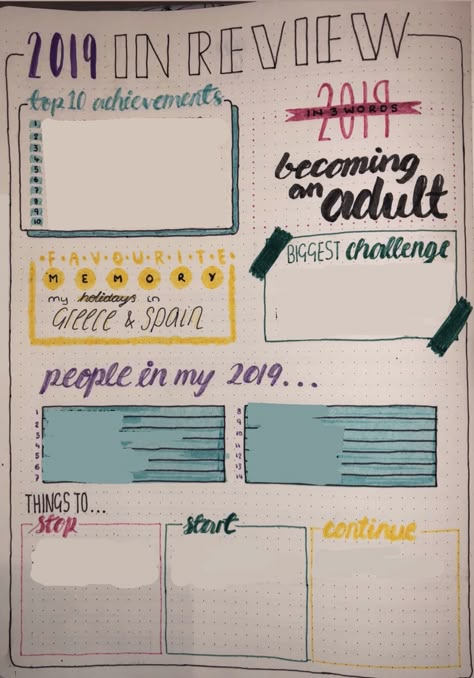 2019 IN REVIEW
top 10 achievements
1
2
3
4
5
6
7
8
9
10
2019
IN 3 WORDS
becoming
an adult
FAVOURITE
MEMORY
my holidays in
GREECE & SPAIN
BIGGEST challenge
people in my 2019...
1
2
3
4
5
6
7
8
9
10
11
12
13
14
THINGS TO...
stop
start
continue